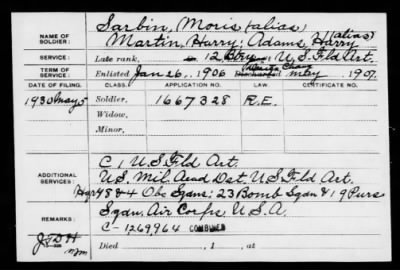 NAME OF SOLDIER: Sarbin, Moris (alias)
Martin, Harry; Adams, Harry (alias)
SERVICE: Late rank, 12 Btry U.S. Fld Art.
TERM OF SERVICE: Enlisted Jan 26, 1906 Discharged 1907.
DATE OF FILING. CLASS. APPLICATION NO. LAW. CERTIFICATE NO.
1930 May 5 Soldier, 1667328 R.E.
Widow,
Minor,
C, U.S. Fld Art.
ADDITIONAL SERVICES: U.S. Mil. Acad Det. U.S. Fld Art.
Hqr 48 & 4 Obs Sqdns; 23 Bomb Sqdn & 19 Purs
REMARKS: Sqdn, Air Corps U.S.A.
C-1269964 COMBINED
Died , 1 , at